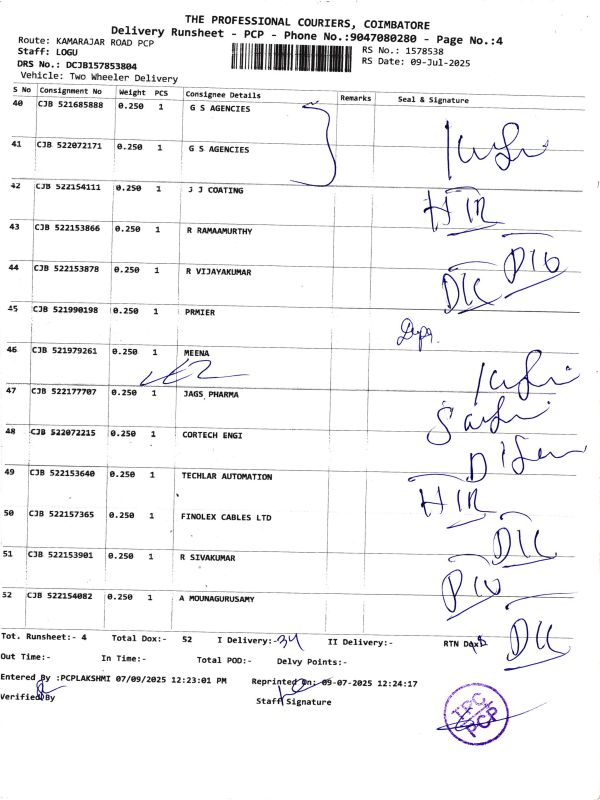 THE PROFESSIONAL COURIERS, COIMBATORE
Delivery Runsheet - PCP - Phone No.:9047080280 - Page No.:4
Route: KAMARAJAR ROAD PCP RS No.: 1578538
Staff: LOGU RS Date: 09-Jul-2025
DRS No.: DCJB157853804
Vehicle: Two Wheeler Delivery
S No Consignment No Weight PCS Consignee Details Remarks Seal & Signature
40 CJB 521685888 0.250 1 G S AGENCIES
41 CJB 522072171 0.250 1 G S AGENCIES
42 CJB 522154111 0.250 1 J J COATING
43 CJB 522153866 0.250 1 R RAMAAMURTHY
44 CJB 522153878 0.250 1 R VIJAYAKUMAR
45 CJB 521990198 0.250 1 PRMIER
46 CJB 521979261 0.250 1 MEENA
47 CJB 522177707 0.250 1 JAGS PHARMA
48 CJB 522072215 0.250 1 CORTECH ENGI
49 CJB 522153640 0.250 1 TECHLAR AUTOMATION
50 CJB 522157365 0.250 1 FINOLEX CABLES LTD
51 CJB 522153901 0.250 1 R SIVAKUMAR
52 CJB 522154082 0.250 1 A MOUNAGURUSAMY
Tot. Runsheet:- 4 Total Dox:- 52 I Delivery:- 34 II Delivery:- RTN Dox:
Out Time:- In Time:- Total POD:- Delvy Points:-
Entered By :PCPLAKSHMI 07/09/2025 12:23:01 PM Reprinted On: 09-07-2025 12:24:17
Verified By Staff Signature
TPC
PCP